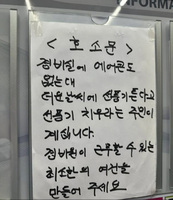 INFORMA
< 호소문 >
정비실에 에어콘도
없는데
더운날씨에 선풍기튼다고
선풍기 치우라는 주인이
계십니다.
정비원이 근무할 수 있는
최소한의 여건을
만들어 주세요